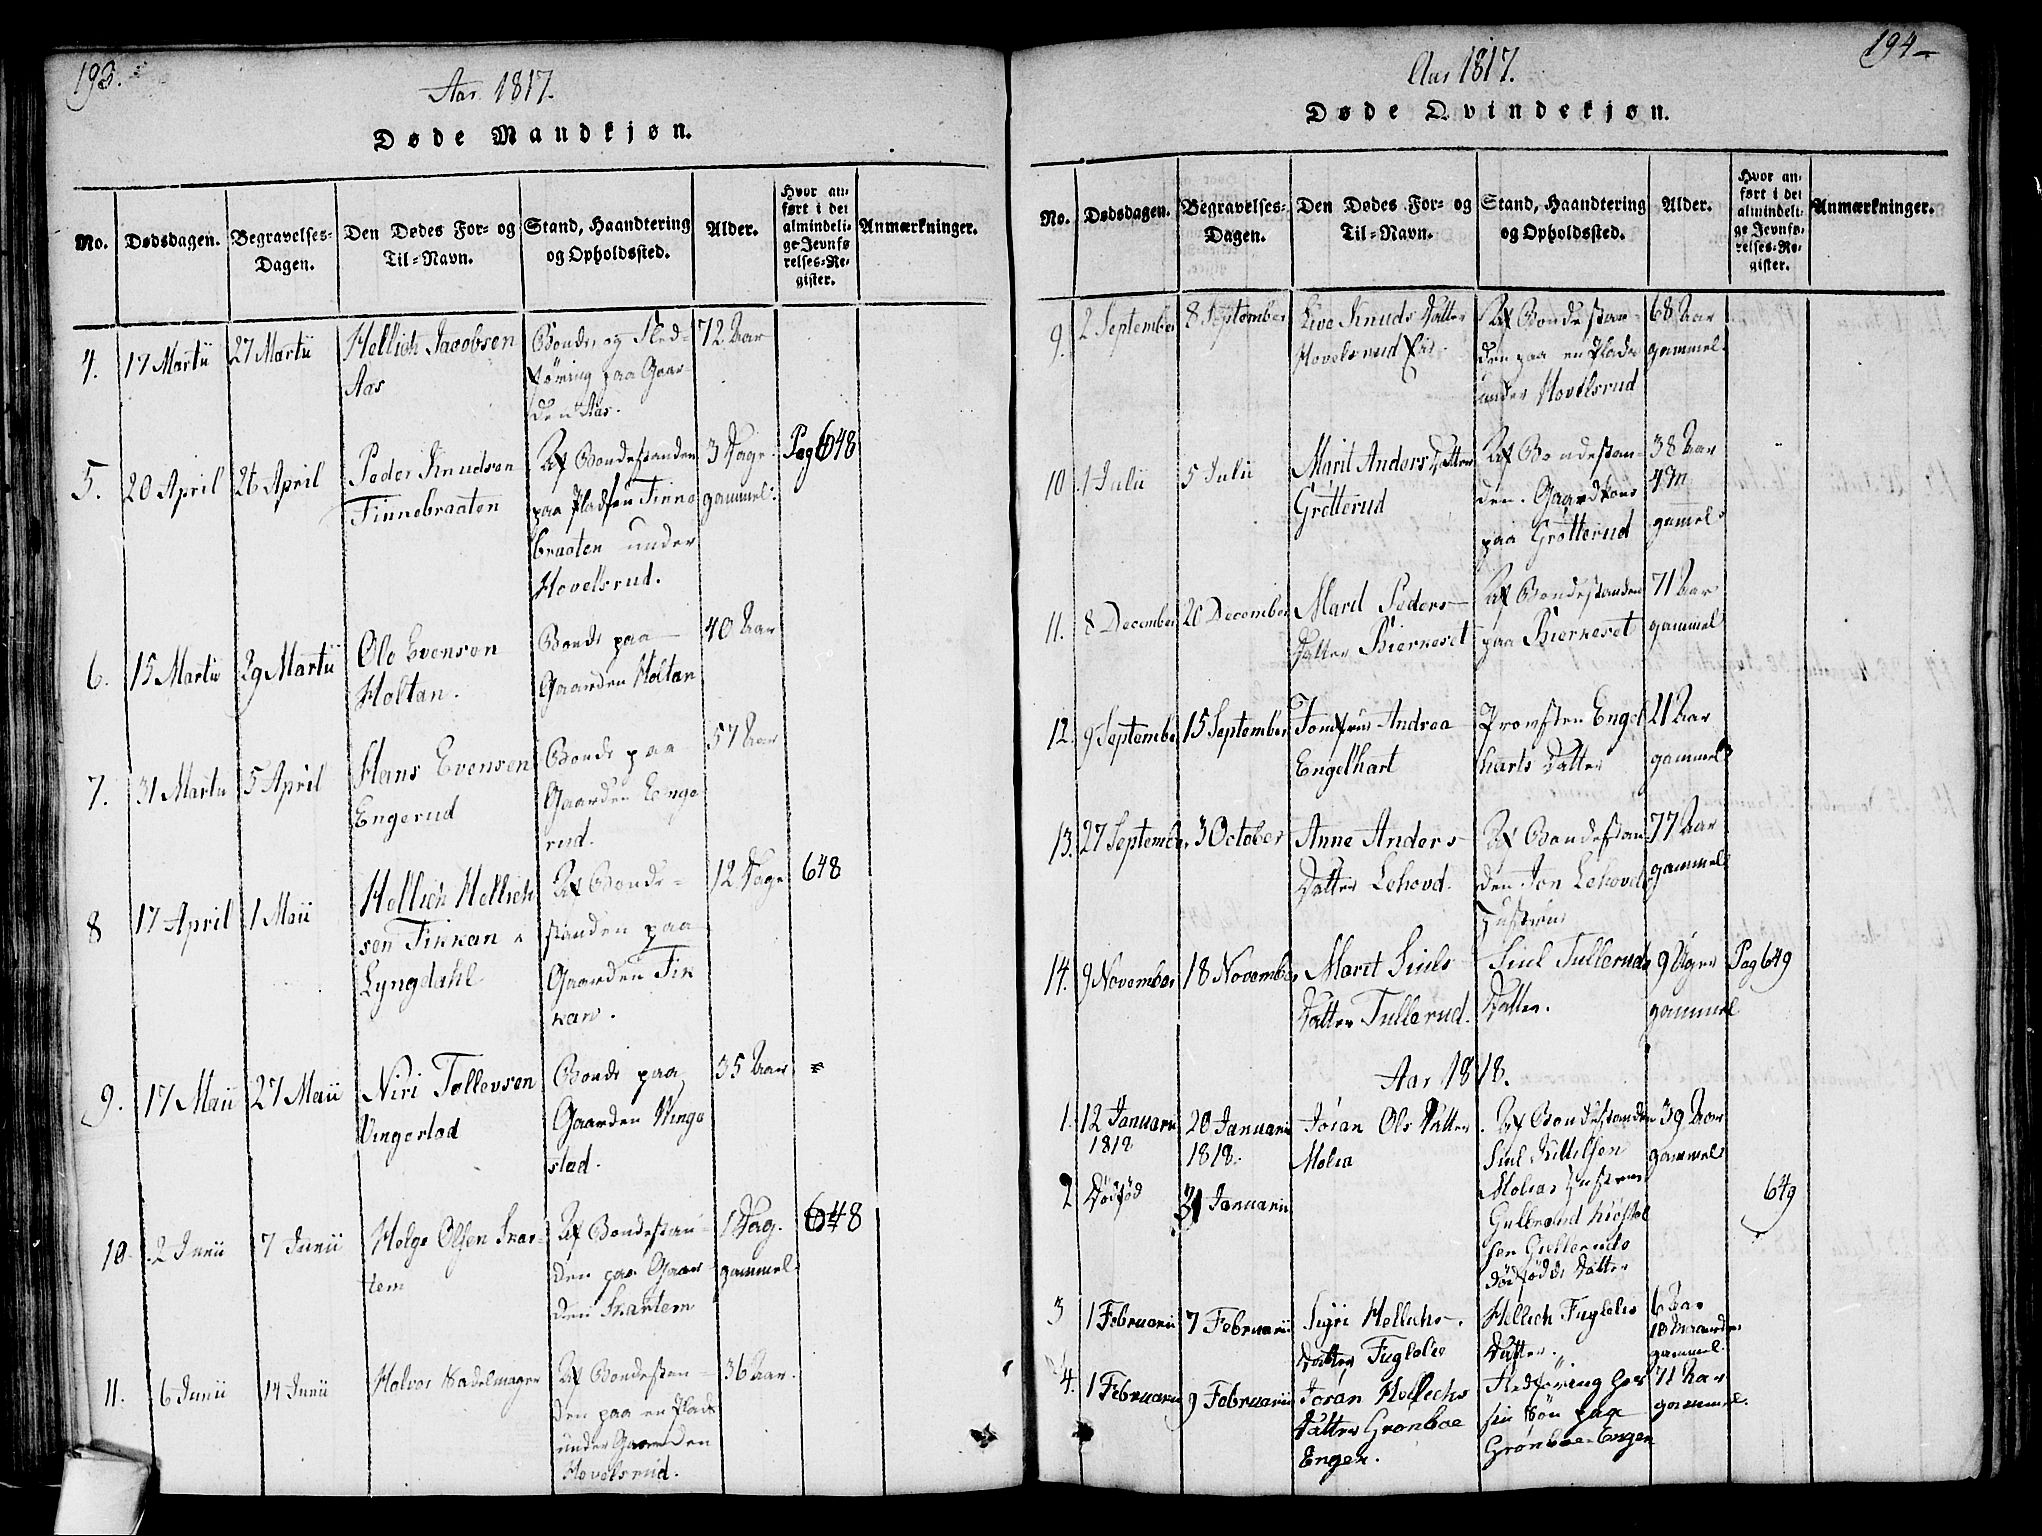 193.
Aar 1817.
Døde Mandkjøn.
No.
Dødsdagen.
Begravelses-
Dagen.
Den Dødes For- og
Til-Navn.
Stand, Haandtering
og Opholdssted.
Alder.
Hvor an-
ført i det
almindeli-
ge Jevnfø-
relses-Re-
gister.
Anmærkninger.
4.
17 Martii
27 Martii
Hellich Jacobsen
Aas
Bonde og Fled-
føring paa Gaar-
den Aas.
72 Aar
5.
20 April
26 April
Peder Knudsen
Finnebraaten
Af Bondestanden
paa Pladsen Finne
braaten under
Hovelsrud.
3 Dage
gammel.
Pag 648
6.
15 Martii
29 Martii
Ole Evensen
Holtan.
Bonde paa
Gaarden Holtan
40 Aar
7.
31 Martii
5 April
Hans Evensen
Engerud
Bonde paa
Gaarden Enge
rud.
57 Aar
8
17 April
1 Maii
Hellich Hellich
sen Finnan
Lyngdahl
Af Bonde-
standen paa
Gaarden Fin
nan.
12 Dage
648
9.
17 Maii
27 Maii
Niri Tollevsen
Vingestad
Bonde paa
Gaarden Vinge
stad.
35 Aar
10.
2 Junii
7 Junii
Helge Olsen Skar-
tem
Af Bondestan-
den paa Gaar-
den Skartem
1 Dag.
gammel.
648
11.
6 Junii
14 Junii
Halvor Sadelmager
Af Bondestan-
den paa en Plads
under Gaarden
Hovelsrud.
36 Aar.
194
Aar 1817.
Døde Qvindekjøn.
No.
Dødsdagen.
Begravelses-
Dagen.
Den Dødes For- og
Til-Navn.
Stand, Haandtering
og Opholdssted.
Alder.
Hvor an-
ført i det
almindeli-
ge Jevnfø-
relses-Re-
gister.
Anmærkninger.
9.
2 September
8 September
Live Knuds Datter
Hovelsrud
Af Bondestan
den paa en Plads
under Hovelsrud
68 Aar
gammel.
10
1 Julii
5 Julii
Marit Anders Datter
Grøtterud
Af Bondestan-
den. Gaardkone
paa Grøtterud
38 Aar
4 M
gammel
11.
8 December
20 December
Marit Peders
Datter Bierkeset
Af Bondestanden
paa Bierkeset
71 Aar
gammel
12.
9 September
15 September
Jomfrue Andrea
Engelhart
Provsten Engel
harts Datter
21 Aar
gammel
13.
27 Septemb.
3 October
Anne Anders
Datter Lehovd.
Af Bondestan
den Jon Lehovds
Hustrue
77 Aar
gammel
14.
9 November
18 November
Marit Siuls
Datter Tullerud.
Siul Tulleruds
Datter.
9 Uger
gammel
Pag 649
Aar 1818.
1.
12 Januarii
1818
20 Januarii
1818.
Jøran Ols Datter
Molia
Af Bondestanden
Siul Kittelsen
Molias Hustrue
39 Aar
gammel
2
Dødfød
31 Januarii
Gulbrand
sen Gulleruds
dødfødde Datter
649
3
1 Februarii
7 Februarii
Sigri Hellichs
Datter Fuglelie
Hellich Fuglelies
Datter.
6 Aar
10 Maaneder
gammel.
4.
1 Februarii
9 Februarii
Jøran Hellichs
Datter Grønboe
Engen.
Fledføring hos
sin Søn paa
Grønboe-Engen
71 Aar
gammel.